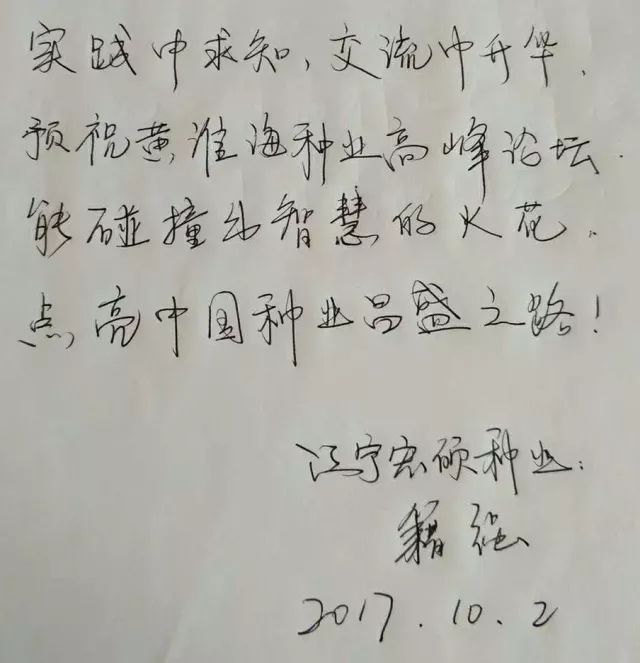 实践中求知,交流中升华.
预祝黄淮海种业高峰论坛.
能碰撞出智慧的火花.
点亮中国种业昌盛之路!
辽宁宏硕种业:
籍强
2017.10.2